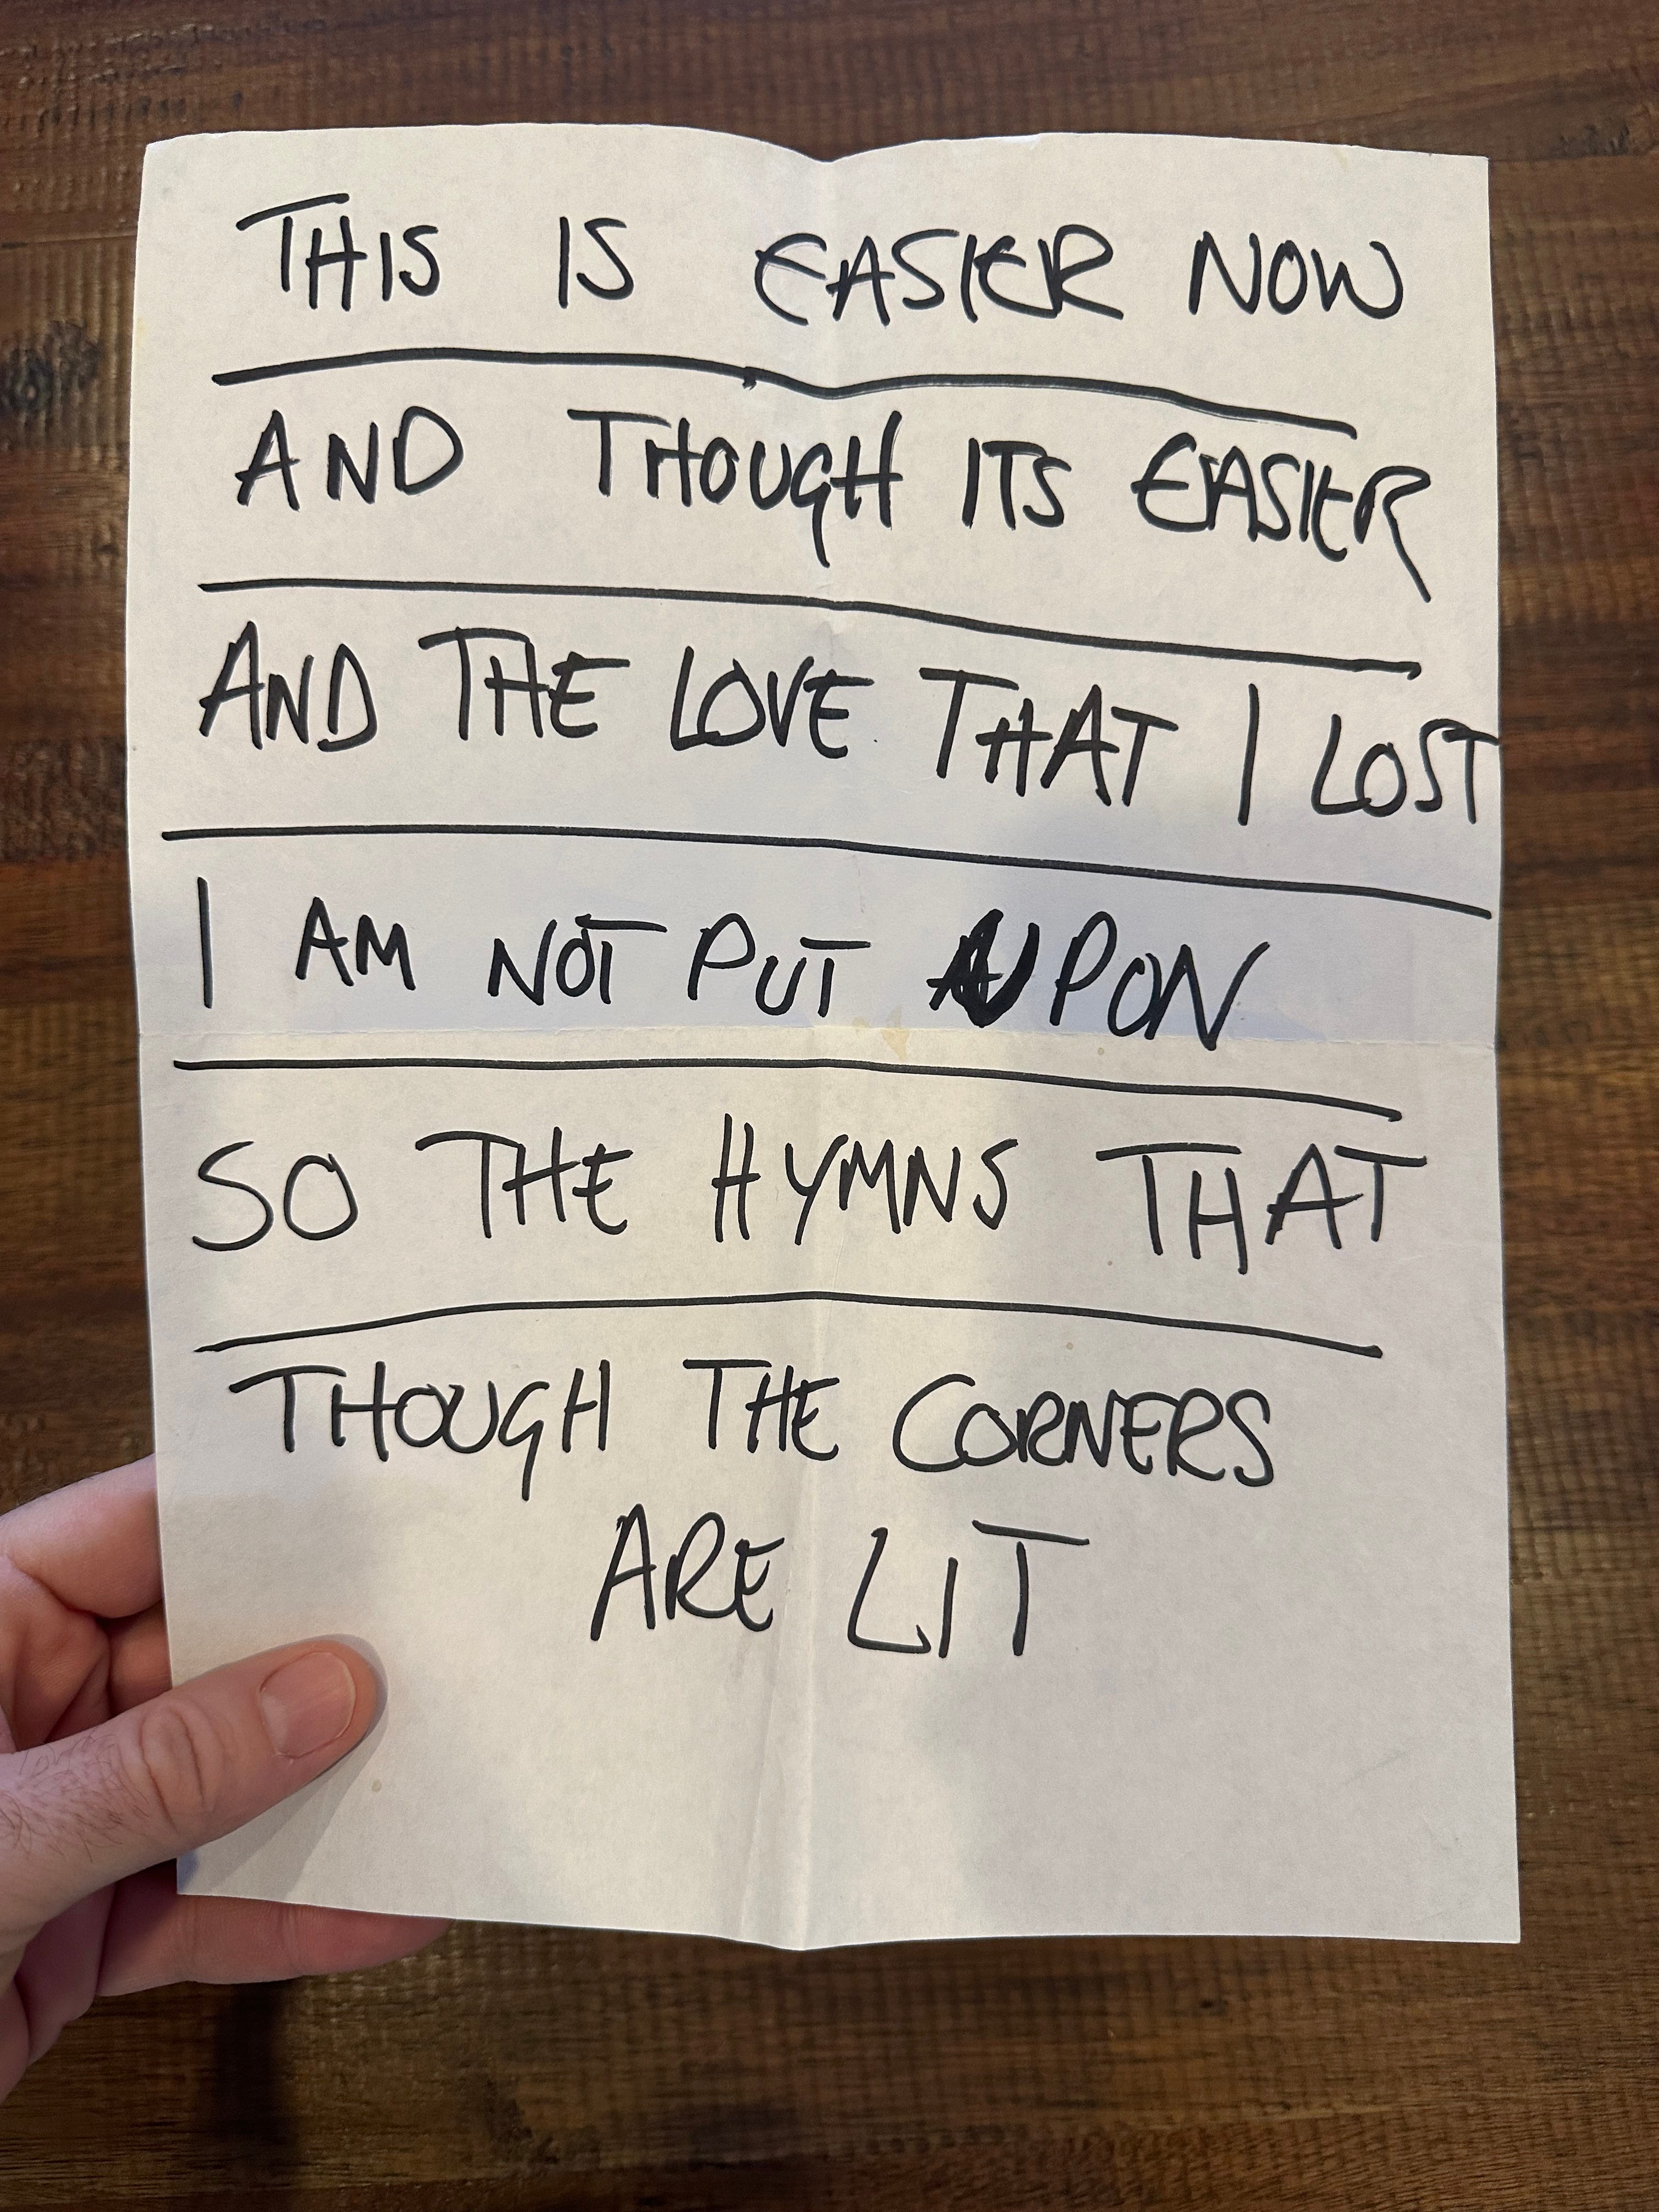 THIS IS EASIER NOW
AND THOUGH ITS EASIER
AND THE LOVE THAT I LOST
I AM NOT PUT UPON
SO THE HYMNS THAT
THOUGH THE CORNERS
ARE LIT